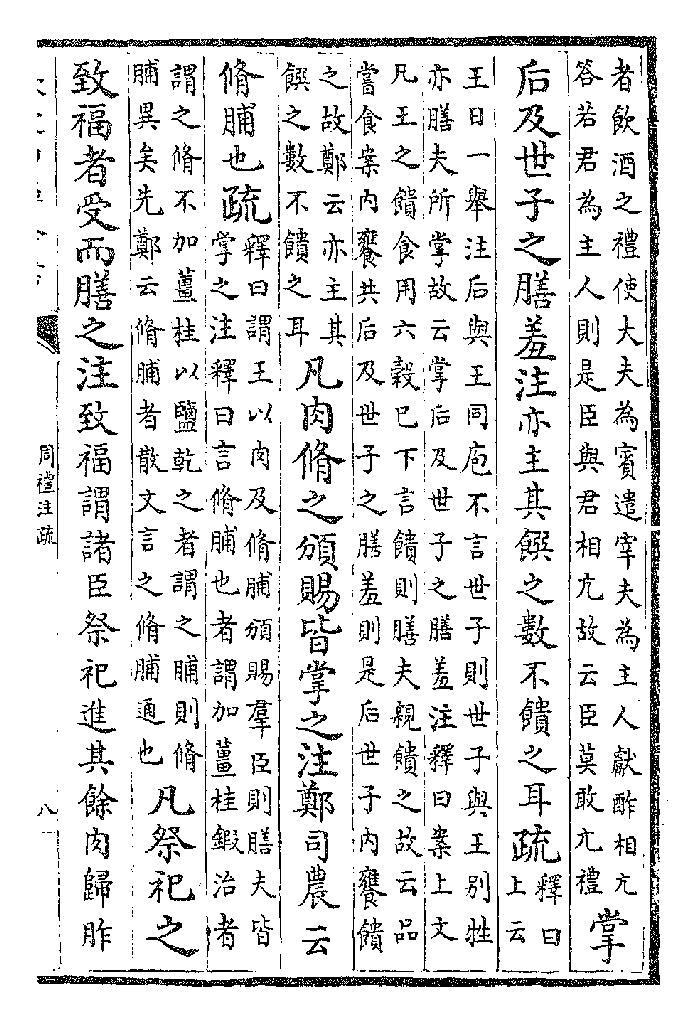 者飲酒之禮使大夫為賓遣宰夫為主人獻酢相亢
答若君為主人則是臣與君相亢故云臣莫敢亢禮
掌
后及世子之膳羞注亦主其饌之數不饋之耳疏
釋曰
上云
王日一舉注后與王同庖不言世子則世子與王別牲
亦膳夫所掌故云掌后及世子之膳羞注釋曰案上文
凡王之饋食用六穀已下言饋則膳夫親饋之故云品
嘗食案內饔共后及世子之膳羞則是后世子內饔饋
之故鄭云亦主其
饌之數不饋之耳
凡肉脩之頒賜皆掌之注鄭司農云
脩脯也疏
釋曰謂王以肉及脩脯頒賜羣臣則膳夫皆
掌之注釋曰言脩脯也者謂加薑桂鍛治者
謂之脩不加薑桂以鹽乾之者謂之脯則脩
脯異矣先鄭云脩脯者散文言之脩脯通也
凡祭祀之
致福者受而膳之注致福謂諸臣祭祀進其餘肉歸胙
周禮注疏
八